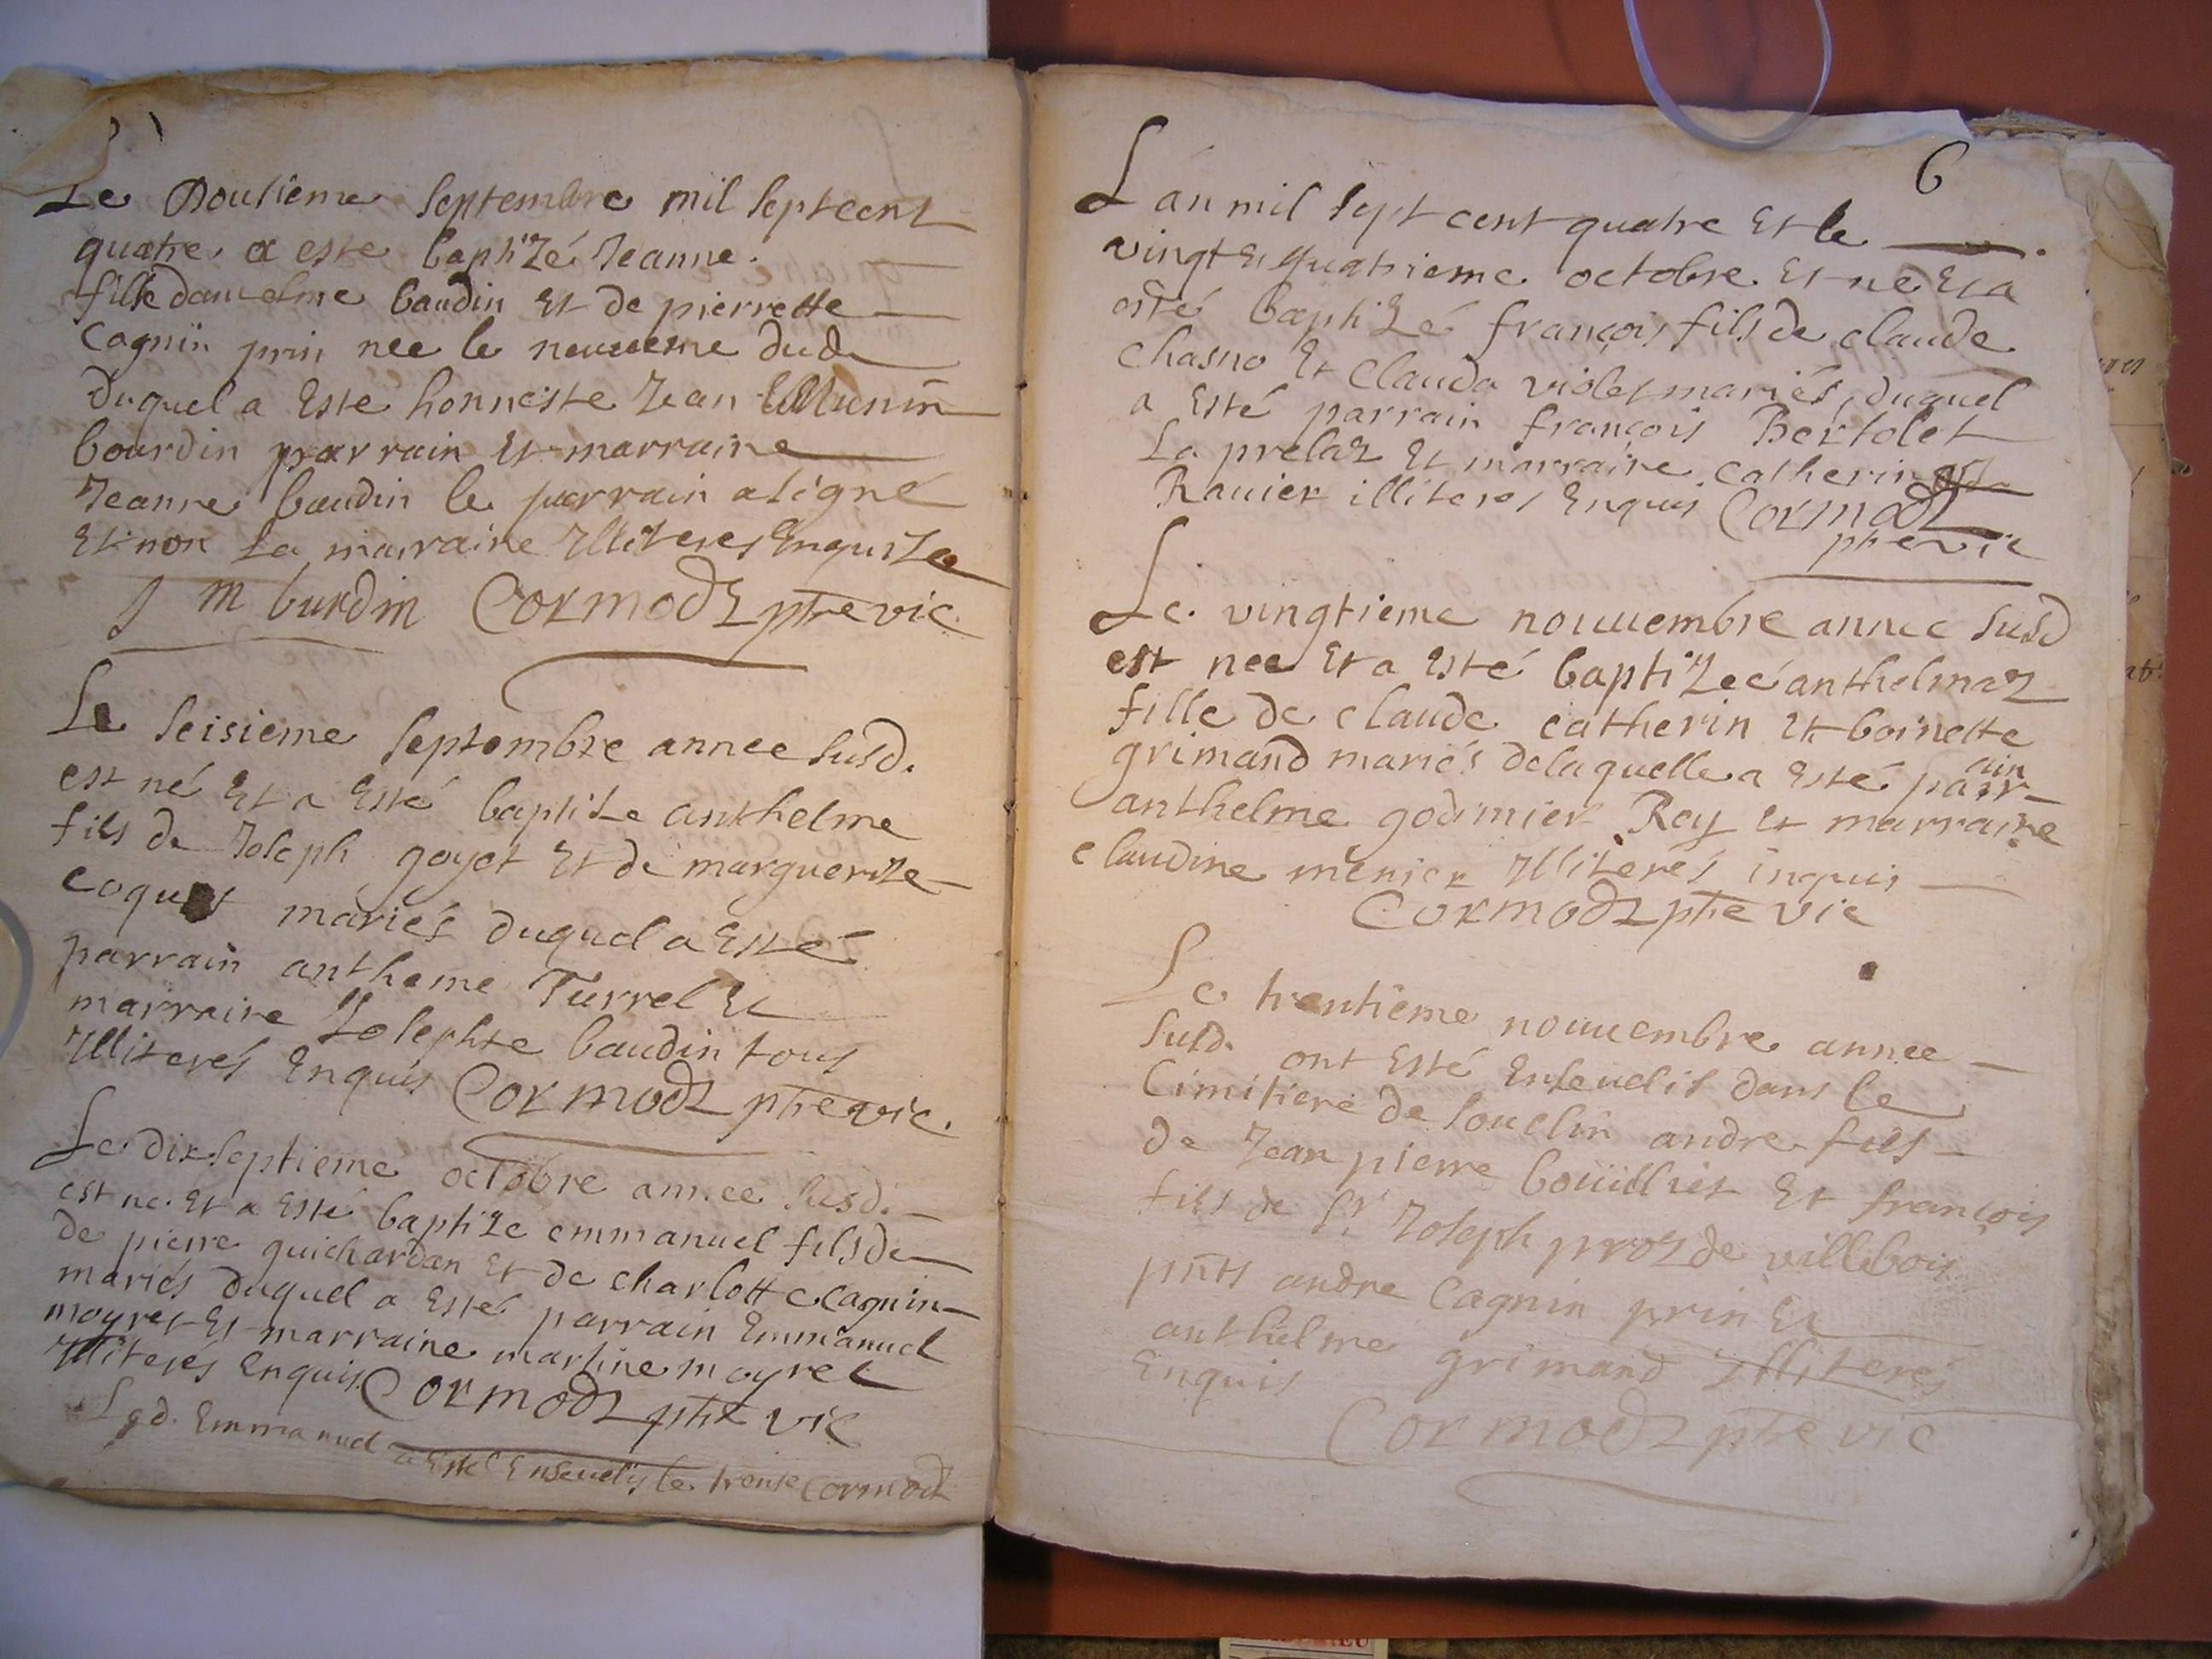 Le Dousieme Septembre mil Septcent
quatre a este baptizé Jeanne
fille danselme baudin Et de pierrette
Cagnin prin nee le neuueme dud
duquel a Este honneste Jean
bourdin parrain Et marraine
Jeanne baudin le parrain a signé
Et non La marraine Illiteres Enquise
J m burdin Cormodz ptre vic
Le Seisieme Septembre annee susd.
est né Et a Esté baptise anthelme
fils de Joseph goyet Et de marguerite
coquet mariés duquel a Esté
parrain antheme Turrel Et
marraine Josephte baudin tous
Illiterés Enquis Cormodz ptre vic.
Le dixseptieme octobre annee susd.
est ne. Et a Esté baptize emmanuel fils de
de pierre guichardan Et de charlotte Cagnin
mariés duquel a Esté parrain Emmanuel
moyret Et marraine martine moyret
Illiterés Enquis Cormodz ptre vic
Led. Emmanuel a Esté Enseuelis le trente Cormodz
6
L'an mil sept cent quatre Et le
vingt Et quatrieme octobre Et né Et a
esté baptizé françois fils de claude
chasno Et Clauda violet mariés, duquel
a Esté parrain françois Bertolet
La prelaz Et marraine catherin
Rauier illiteres Enquis Cormodz
ptre vic
Le vingtieme nouuembre annee susd
est nee Et a Esté baptizeé anthelmaz
fille de claude catherin Et boinette
grimand mariés delaquelle a Esté parr
ain
anthelme godimier Rey Et marraine
claudine menier Illiterés inquis
Cormodz ptre vic
Le trentieme nouuembre annee
susd. ont Esté Enseuelis dans le
Cimitiere de souclin andre fils
de Jean pierre bouillet Et françois
fils de Sr Joseph proz de villebois
pnts andre Cagnin prin Et
anthelme grimand Illiterés
Enquis
Cormodz ptre vic